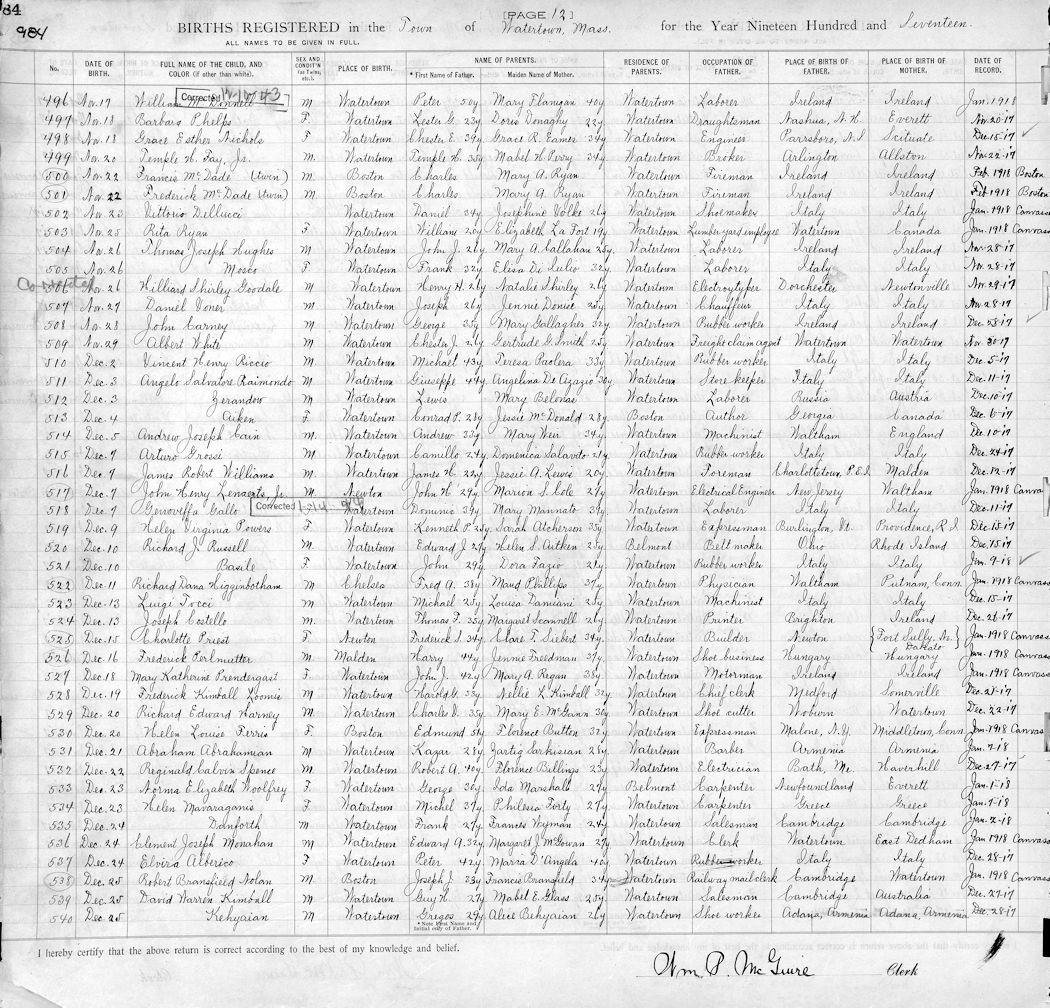 84
984
[PAGE 12]
BIRTHS REGISTERED in the Town of Watertown, Mass. for the Year Nineteen Hundred and Seventeen.
ALL NAMES TO BE GIVEN IN FULL.
No. DATE OF BIRTH. FULL NAME OF THE CHILD, AND COLOR (if other than white). SEX AND CONDIT'N (as Twins, etc.). PLACE OF BIRTH. NAME OF PARENTS. * First Name of Father. Maiden Name of Mother. RESIDENCE OF PARENTS. OCCUPATION OF FATHER. PLACE OF BIRTH OF FATHER. PLACE OF BIRTH OF MOTHER. DATE OF RECORD.
Corrected 12-17-43
496 Nov. 17 William M Watertown Peter 50y Mary Flanigan 40y Watertown Laborer Ireland Ireland Jan. 1918
497 Nov. 18 Barbara Phelps F. Watertown Lester G. 23y Doris Donaghy 22y Watertown Draughtsman Nashua, N.H. Everett Nov. 20-17
498 Nov. 18 Grace Esther Nichols F Watertown Chester E. 39y Grace R. Eames 34y Watertown Engineer Parrsboro, N.S Scituate Dec. 15-17
499 Nov. 20 Temple H. Fay, Jr. M. Watertown Temple H. 35y Mabel H. Perry 34y Watertown Broker Arlington Allston Nov. 22-17
500 Nov. 22 Francis McDade (twin) M. Boston Charles Mary A. Ryan Watertown Fireman Ireland Ireland Feb. 1918 Boston
501 Nov. 22 Frederick McDade (twin) M. Boston Charles Mary A. Ryan Watertown Fireman Ireland Ireland Feb. 1918 Boston
502 Nov. 23 Vittorio Dellucci Watertown Daniel 34y Josephine Volke 26y Watertown Shoemaker Italy Italy Jan. 1918 Canvass
503 Nov. 25 Rita Ryan F Watertown William 20y Elizabeth La Fort 19y Watertown Lumber yard employee Watertown Canada Jan. 1918 Canvass
504 Nov. 26 Thomas Joseph Hughes M Watertown John J. 26y Mary A. Callahan 25y Watertown Laborer Ireland Ireland Nov. 28-17
505 Nov. 26 Mosco F. Watertown Frank 32y Elisa De Iulio 32y Watertown Laborer Italy Italy Nov. 28-17
506 Nov. 26 Williard Shirley Goodale M Watertown Henry H. 26y Natalie Shirley 26y Watertown Electrotyper Dorchester Newtonville Nov. 29-17
507 Nov. 27 Daniel M Watertown Joseph 26y Jennie 25y Watertown Chauffeur Italy Italy Nov. 28-17
508 Nov. 28 John Carney M Watertown George 35y Mary Gallagher 32y Watertown Rubber worker Ireland Ireland Dec.
509 Nov. 29 Albert White M Watertown Chester J. 26y Gertrude G. Smith 25y Watertown Freight claim agent Watertown Watertown Nov. 30-17
510 Dec. 2 Vincent Henry Riccio M Watertown Michael 43y Teresa Paolera 33y Watertown Rubber worker Italy Italy Dec. 5-17
511 Dec. 3 Angelo Salvatore Raimondo M Watertown Giuseppe 44y Angelina De Azazio 30y Watertown Store keeper Italy Italy Dec. 11-17
512 Dec. 3 Zerandow M Watertown Lewis Mary Belonas Watertown Laborer Russia Austria Dec. 10-17
513 Dec. 4 Aiken F. Watertown Conrad P. 28y Jessie McDonald 28y Boston Author Georgia Canada Dec. 6-17
514 Dec. 5 Andrew Joseph Cain M. Watertown Andrew 33y Mary Weir 34y Watertown Machinist Waltham England Dec. 10-17
515 Dec. 7 Arturo Grossi M. Watertown Camillo 24y Domenica Salavito 21y Watertown Rubber worker Italy Italy Dec. 24-17
516 Dec. 7 James Robert Williams M. Watertown James H. 22y Jessie A. Lewis 20y Watertown Foreman Charlottetown, P.E.I. Malden Dec. 12-17
517 Dec. 7 John Henry Lenaerts, Jr. M Newton John H. 29y Marion S. Cole 27y Watertown Electrical Engineer New Jersey Waltham Jan. 1918 Canva
Corrected
518 Dec. 7 Genoveffa Gallo Watertown Dominic 39y Mary Mannato 39y Watertown Laborer Italy Italy Dec. 11-17
519 Dec. 9 Helen Virginia Powers F Watertown Kenneth P. 25y Sarah Atcherson 35y Watertown Expressman Burlington, Vt. Providence, R.I Dec. 13-17
520 Dec. 10 Richard J. Russell M. Watertown Edward J. 27y Helen S. Aitken 25y Belmont Belt maker Ohio Rhode Island Dec. 15-17
521 Dec. 10 Basile F Watertown John 29y Dora Fazio 21y Watertown Rubber worker Italy Italy Jan. 9-18
522 Dec. 11 Richard Dana Higginbotham M Chelsea Fred A. 38y Maud Phillips 37y Watertown Physician Waltham Putnam, Conn. Jan. 1918 Canvass
523 Dec. 13 Luigi Tocci M Watertown Michael 25y Louisa Damiani 25y Watertown Machinist Italy Italy Dec. 15-17
524 Dec. 13 Joseph Costello M. Watertown Thomas F. 35y Margaret Scannell 26y Watertown Brighton Ireland Dec. 26-17
525 Dec. 15 Charlotte Priest F. Newton Frederick S. 34y Clare T. Siebert 34y Watertown Builder Newton {Fort Sully, So. Dakato} Jan. 1918 Canvass
526 Dec. 16 Frederick Perlmutter M Malden Harry 44y Jennie Freedman 37y Watertown Shoe business Hungary Hungary Jan. 1918 Canvass
527 Dec. 18 Mary Katherine Prendergast F. Watertown John J. 42y Mary A. Regan 38y Watertown Motorman Ireland Ireland Jan. 1918 Canvass
528 Dec. 19 Frederick Kimball Loomis M Watertown Harold G. 33y Nellie L. Kimball 32y Watertown Chief clerk Medford Somerville Dec. 21-17
529 Dec. 20 Richard Edward Harney M. Watertown Charles V. 35y Mary E. McGann 36y Watertown Shoe cutter Woburn Watertown Dec. 22-17
530 Dec. 20 Helen Louise Ferris F. Boston Edmund 51y Florence Button 32y Watertown Expressman Malone, N.Y. Middletown, Conn. Jan. 1918 Canvas
531 Dec. 21 Abraham Abrahamian M Watertown Kazar 28y Zartig Sarkissian 28y Watertown Barber Armenia Armenia Jan. 7-18
532 Dec. 22 Reginald Calvin Spence M Watertown Robert A. 40y Florence Billings 23y Watertown Electrician Bath, Me. Haverhill Dec. 27-17
533 Dec. 23 Norma Elizabeth Woolfrey F Watertown George 30y Ida Marshall 29y Belmont Carpenter Newfoundland Everett Jan. 1-18
534 Dec. 23 Helen Mavaraganis F Watertown Michel 37y Philesia Forty 27y Watertown Carpenter Greece Greece Jan. 7-18
535 Dec. 24 Danforth M Watertown Frank 27y Frances Wyman 24y Watertown Salesman Cambridge Cambridge Jan. 2-18
536 Dec. 24 Clement Joseph Monahan M Watertown Edward A. 32y Margaret J. McGowan 27y Watertown Clerk Watertown East Dedham Jan. 1918 Canvass
537 Dec. 24 Elvira Alberico F Watertown Peter 42y Maria D'Angela 40y Watertown Rubber worker Italy Italy Dec. 28-17
538 Dec. 25 Robert Bransfield Nolan M. Boston Joseph J. 33y Francis Bransfield 34y Watertown Railway mail clerk Cambridge Watertown Jan. 1918 Canvass
539 Dec. 25 David Warren Kimball M Watertown Guy H. 27y Mabel E. Glass 25y Watertown Salesman Cambridge Australia Dec. 27-17
540 Dec. 25 Kehyaian M Watertown Gregos 29y Alice Behyaian 26y Watertown Shoe worker Adana, Armenia Adana, Armenia Dec. 28-17
* Note First Name and Initial only of Father.
I hereby certify that the above return is correct according to the best of my knowledge and belief.
Wm. P. McGuire Clerk